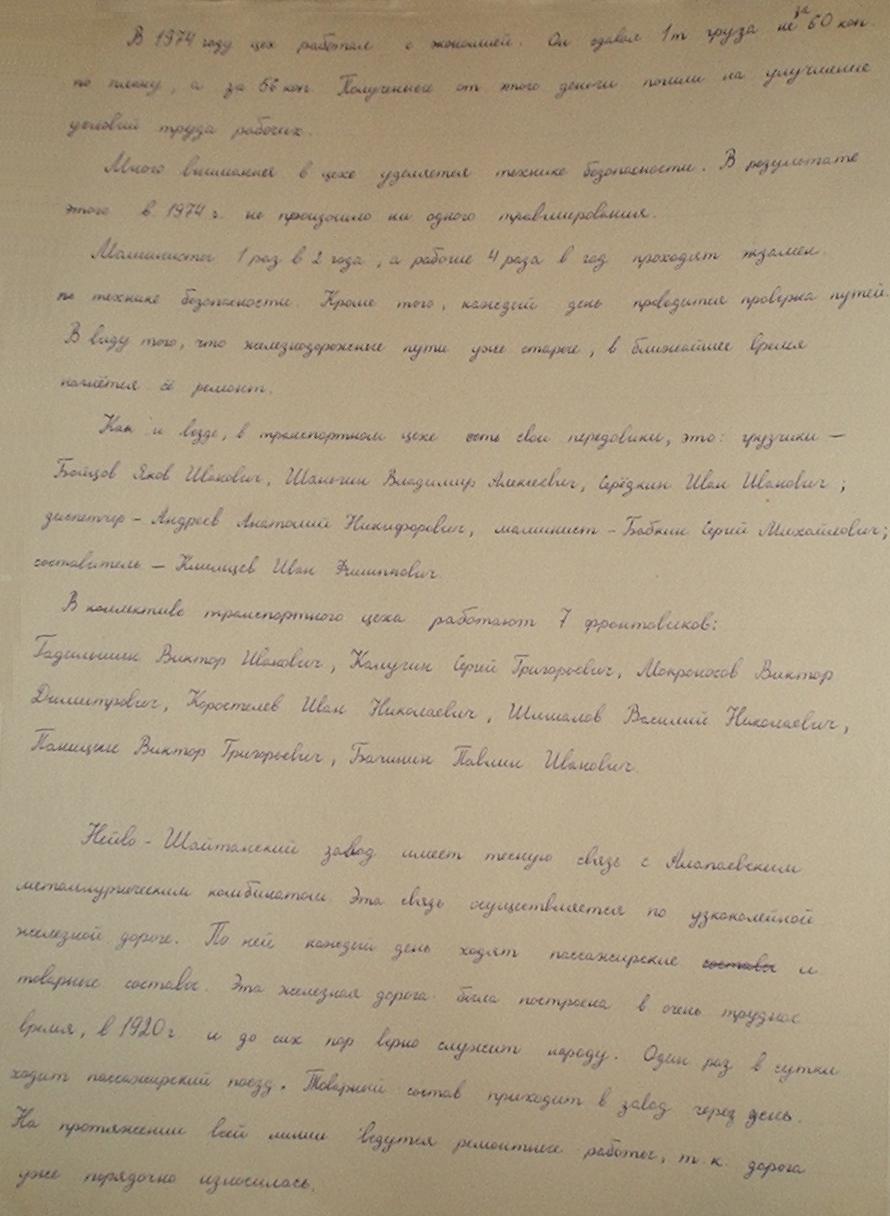 В 1974 году цех работал с экономией. Он сдавал 1т груза не за 60 коп.
по плану, а за 56 коп. Полученные от этого деньги пошли на улучшение
условий труда рабочих.
Много внимания в цехе уделяется технике безопасности. В результате
этого в 1974 г. не произошло ни одного травмирования.
Машинисты 1 раз в 2 года, а рабочие 4 раза в год проходят экзамен
по технике безопасности. Кроме того, каждый день проводится проверка путей.
В виду того, что железнодорожные пути уже старые, в ближайшее время
начнётся её ремонт.
Как и везде, в транспортном цехе есть свои передовики, это: грузчики —
Бойцов Яков Иванович, Шаньгин Владимир Алексеевич, Серёдкин Иван Иванович;
диспетчер – Андреев Анатолий Никифорович, машинист – Бабкин Сергей Михайлович;
составитель — Клещёв Иван Филиппович.
В коллективе транспортного цеха работают 7 фронтовиков:
Гадильшин Виктор Иванович, Калугин Сергей Григорьевич, Мокроносов Виктор
Димитрович, Коростелев Иван Николаевич, Шишалов Василий Николаевич,
Паницын Виктор Григорьевич, Бачинин Павлин Иванович.
Нейво - Шайтанский завод имеет тесную связь с Алапаевским
металлургическим комбинатом. Эта связь осуществляется по узкоколейной
железной дороге. По ней каждый день ходят пассажирские составы и
товарные составы. Эта железная дорога была построена в очень трудное
время, в 1920 г. и до сих пор верно служит народу. Один раз в сутки
ходит пассажирский поезд. Товарный состав приходит в завод через день.
На протяжении всей линии ведутся ремонтные работы, т.к. дорога
уже порядочно износилась.